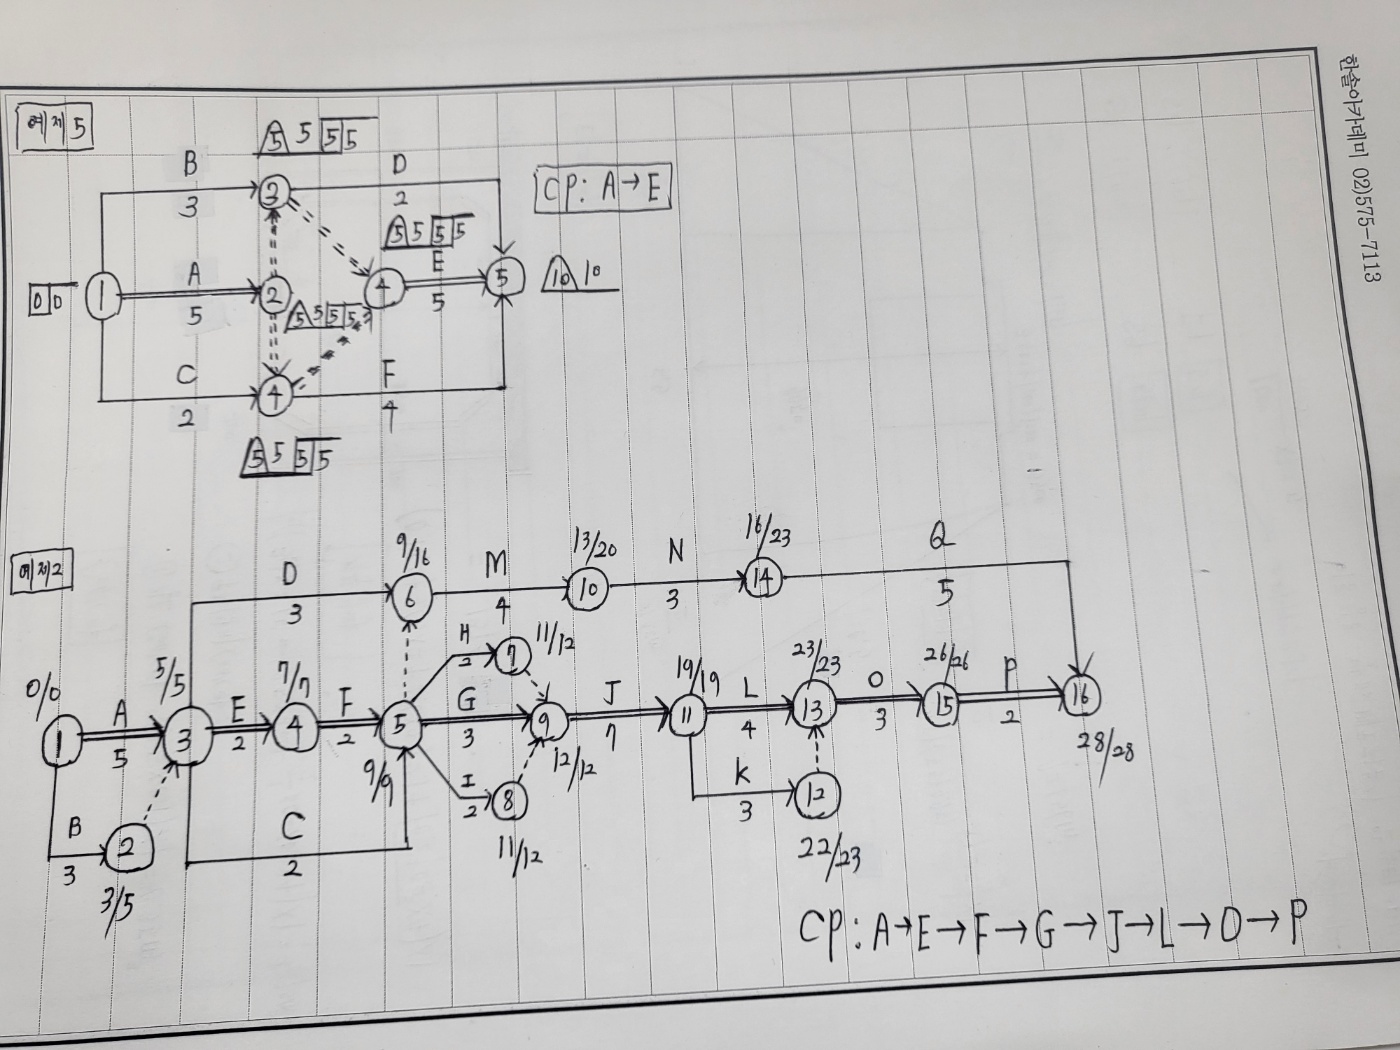 한솔아카데미 02)575-7113
예제5
△5 5 5 5
B
3
3
D
2
CP: A→E
5 5 5 5
0 0
1
A
5
2
5 5 5 5
4
E
5
5
10 10
C
2
4
F
4
5 5 5 5
예제2
9/16
13/20
16/23
D
3
6
M
4
10
N
3
14
Q
5
0/0
5/5
7/7
H
2
7
11/12
19/19
23/23
26/26
1
A
5
3
E
2
4
F
2
5
G
3
9
J
7
11
L
4
13
O
3
15
P
2
16
9/9
I
2
8
12/12
28/28
B
3
2
3/5
C
2
11/12
K
3
12
22/23
CP: A→E→F→G→J→L→O→P